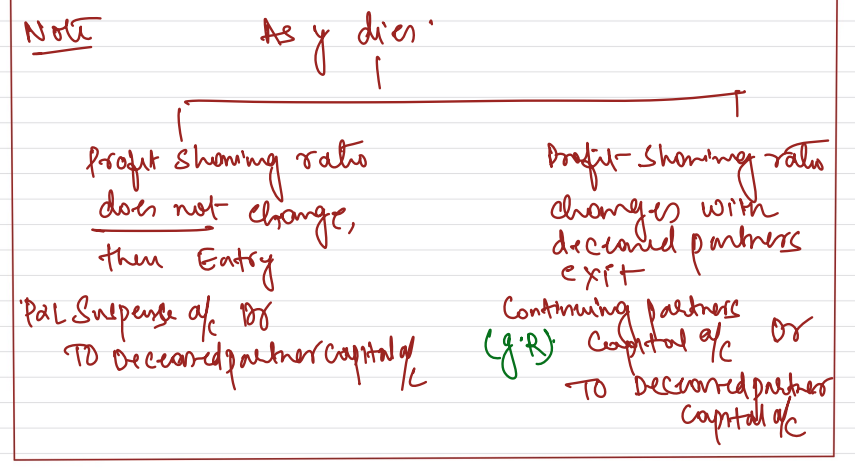 Note
As y dies.
Profit sharing ratio
does not change,
then Entry
P&L Suspense a/c Dr
To Deceased partner capital a/c
Profit sharing ratio
changes with
deceased partners
exit
Continuing partners
(g.R). Capital a/c Dr
To Deceased partner
capital a/c